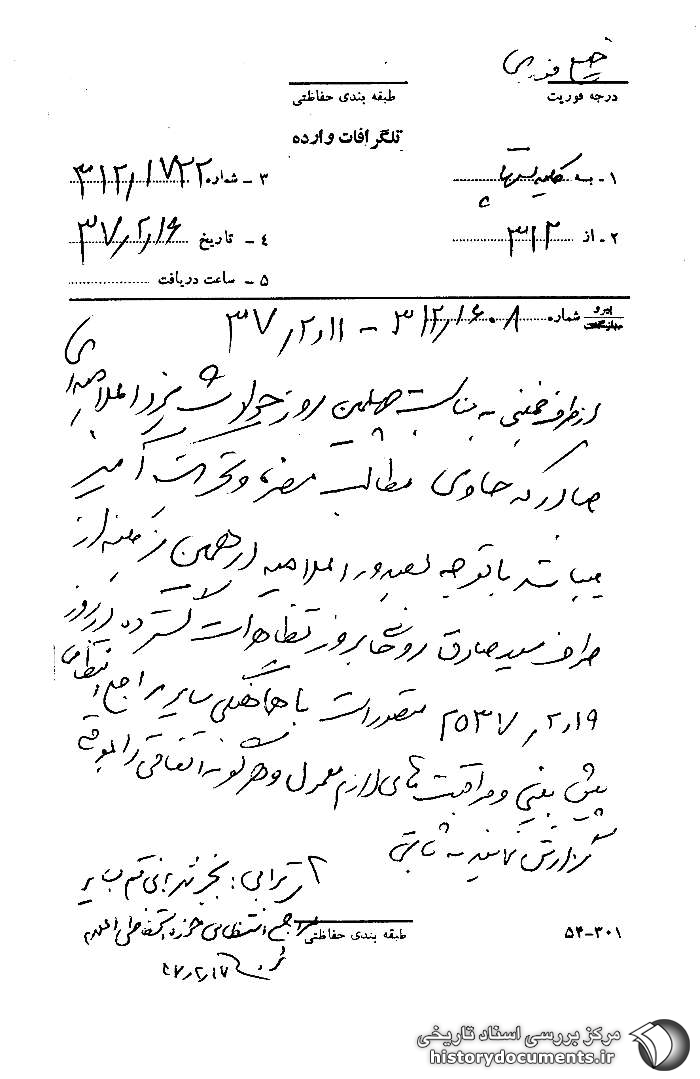 خیلی فوری
درجه فوریت
طبقه بندی حفاظتی
تلگرافات وارده
۱ - به کلیه بستها
۳ - شماره ۳۱۲/۱۷۲۲
۲ - از ۳۱۲
۴ - تاریخ ۳۷/۲/۱۶
۵ - ساعت دریافت
پیرو شماره ۳۱۲/۱۶۰۸ - ۳۷/۲/۱۱
از طرف خمینی به مناسبت چهلمین روز حوادث یزد اعلامیه ای
صادر که حاوی مطالب مضره و تحریک آمیز
میباشد با توجه بصدور اعلامیه در همین زمینه از
طرف سید صادق روحانی بروز تظاهرات گسترده در روز
۲۵۳۷/۲/۱۹ متصور است با هماهنگی سایر مراجع انتظامی
پیش بینی و مراقبت های لازم معمول و هرگونه اتفاقی را بموقع
گزارش نمایند ثابتی
بجز شهربانی قم به سایر
مراجع انتظامی حوزه استحفاظی اعلام
۳۷/۲/۱۷
طبقه بندی حفاظتی
۵۴-۳۰۱
مرکز بررسی اسناد تاریخی
historydocuments.ir